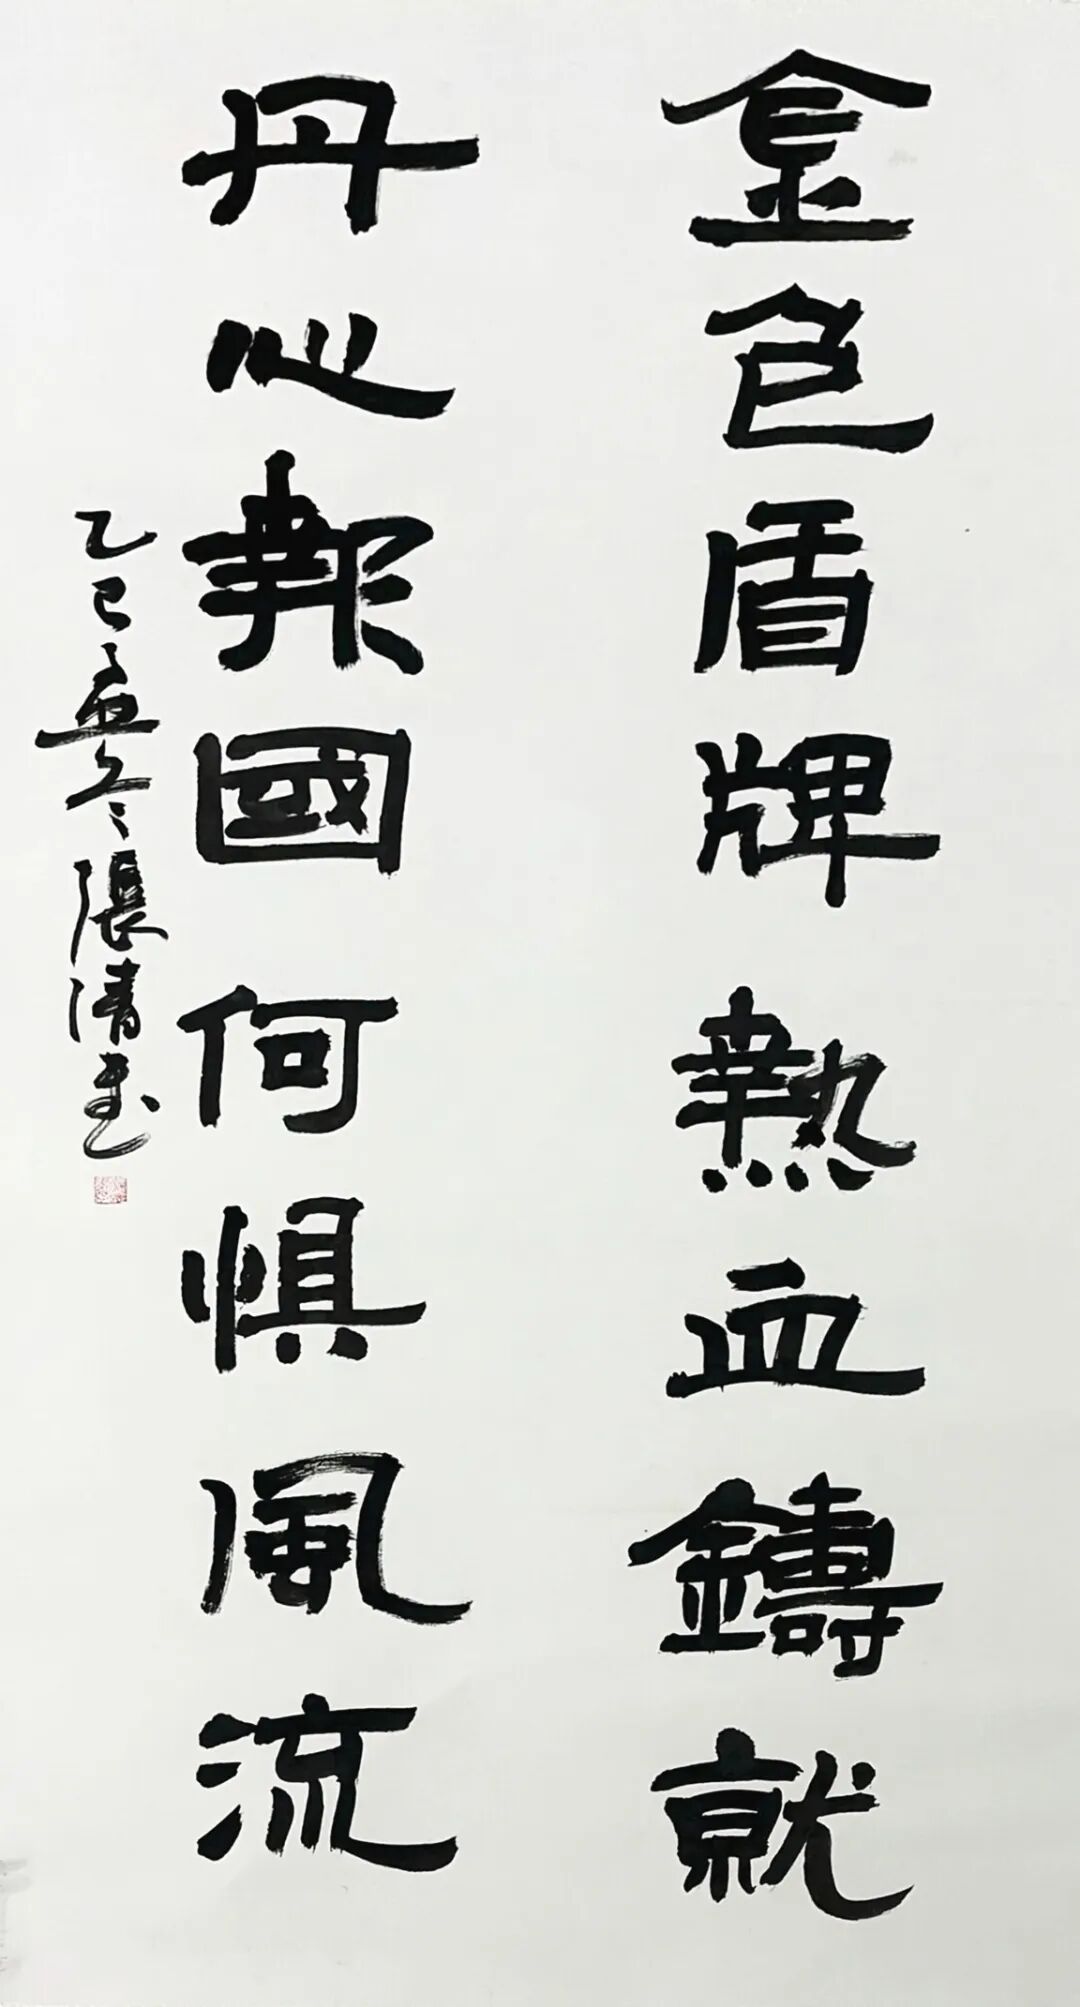 金色盾牌熱血鑄就
丹心報國何惧風流
乙巳孟冬張清玉